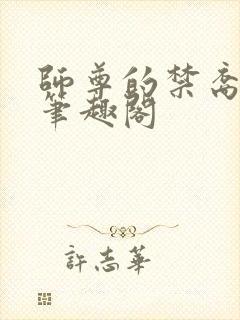 師尊的禁臠
筆趣閣
許志華